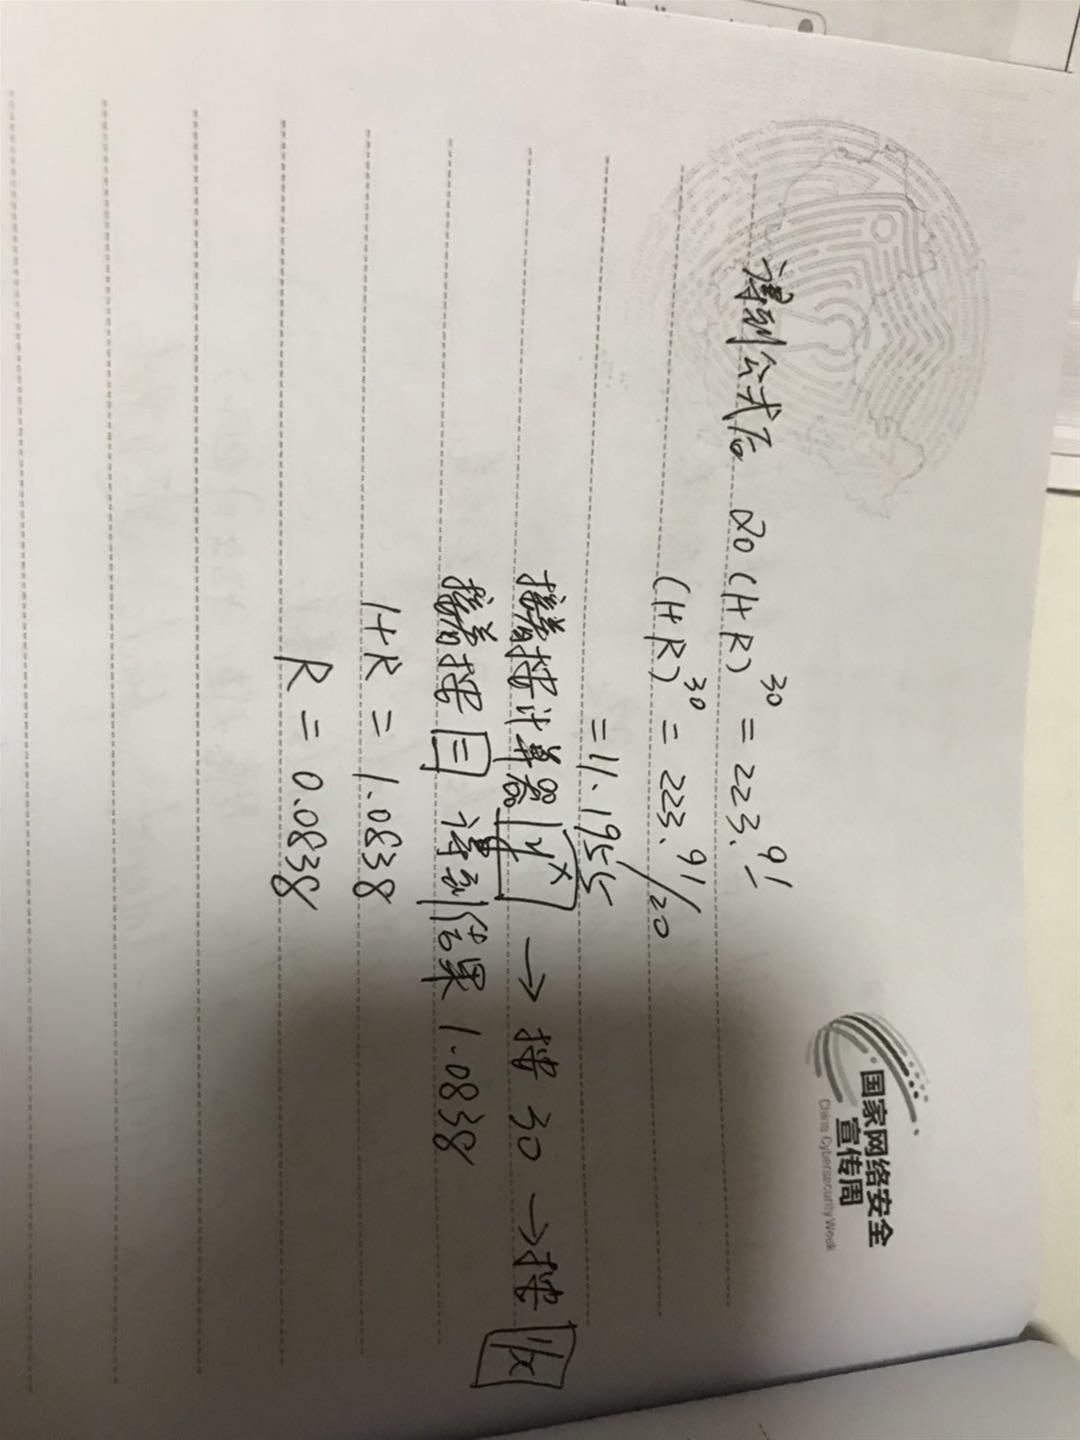 国家网络安全
宣传周
China Cybersecurity Week
得到公式后 20(1+R)³⁰ = 223.91
(1+R)³⁰ = 223.91/20
= 11.1955
接着按计算器 yˣ → 按 30 → 按 1/x
接着按 = 得到结果 1.0838
1+R = 1.0838
R = 0.0838